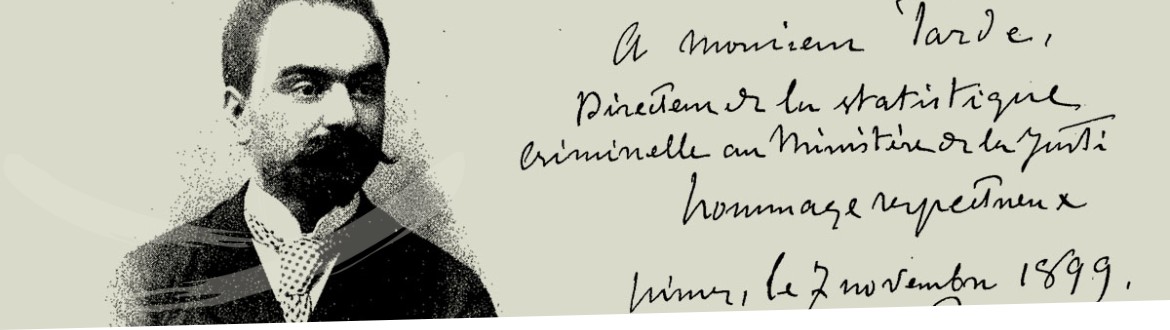 A monsieur Tarde,
Directeur de la statistique
criminelle au Ministère de la Justi
hommage respectueux
Nîmes, le 7 novembre 1899.